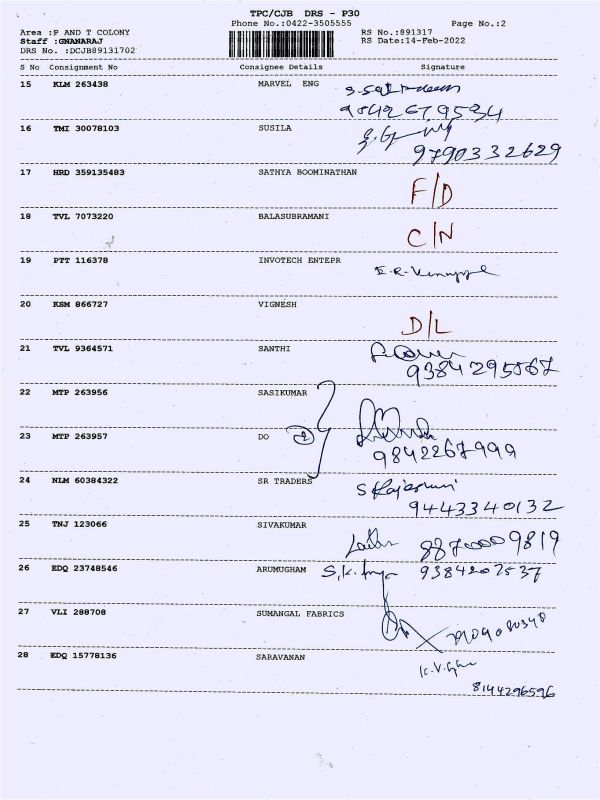 TPC/CJB DRS - P30
Phone No.:0422-3505555 Page No.:2
Area :P AND T COLONY RS No.:891317
Staff :GNANARAJ RS Date:14-Feb-2022
DRS No. :DCJB89131702
S No Consignment No Consignee Details Signature
15 KLM 263438 MARVEL ENG
9842679534
16 TMI 30078103 SUSILA
9790332629
17 HRD 359135483 SATHYA BOOMINATHAN
F/D
18 TVL 7073220 BALASUBRAMANI
C/N
19 PTT 116378 INVOTECH ENTEPR
20 KSM 866727 VIGNESH
D/L
21 TVL 9364571 SANTHI
9384295567
22 MTP 263956 SASIKUMAR
23 MTP 263957 DO 2
9842267999
24 NLM 60384322 SR TRADERS
9443340132
25 TNJ 123066 SIVAKUMAR
8870009819
26 EDQ 23748546 ARUMUGHAM 9384207537
27 VLI 288708 SUMANGAL FABRICS
28 EDQ 15778136 SARAVANAN
8144296596